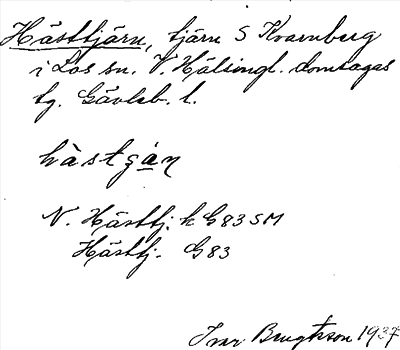 Hästtjärn, tjärn S Kvarnberg
i Los sn. V. Hälsingl. domsagas
tg. Gävleb. l.
hàstgạ̀n
N. Hästtj. k G83SM
Hästtj. G83
Ivar Bengtsson 1937